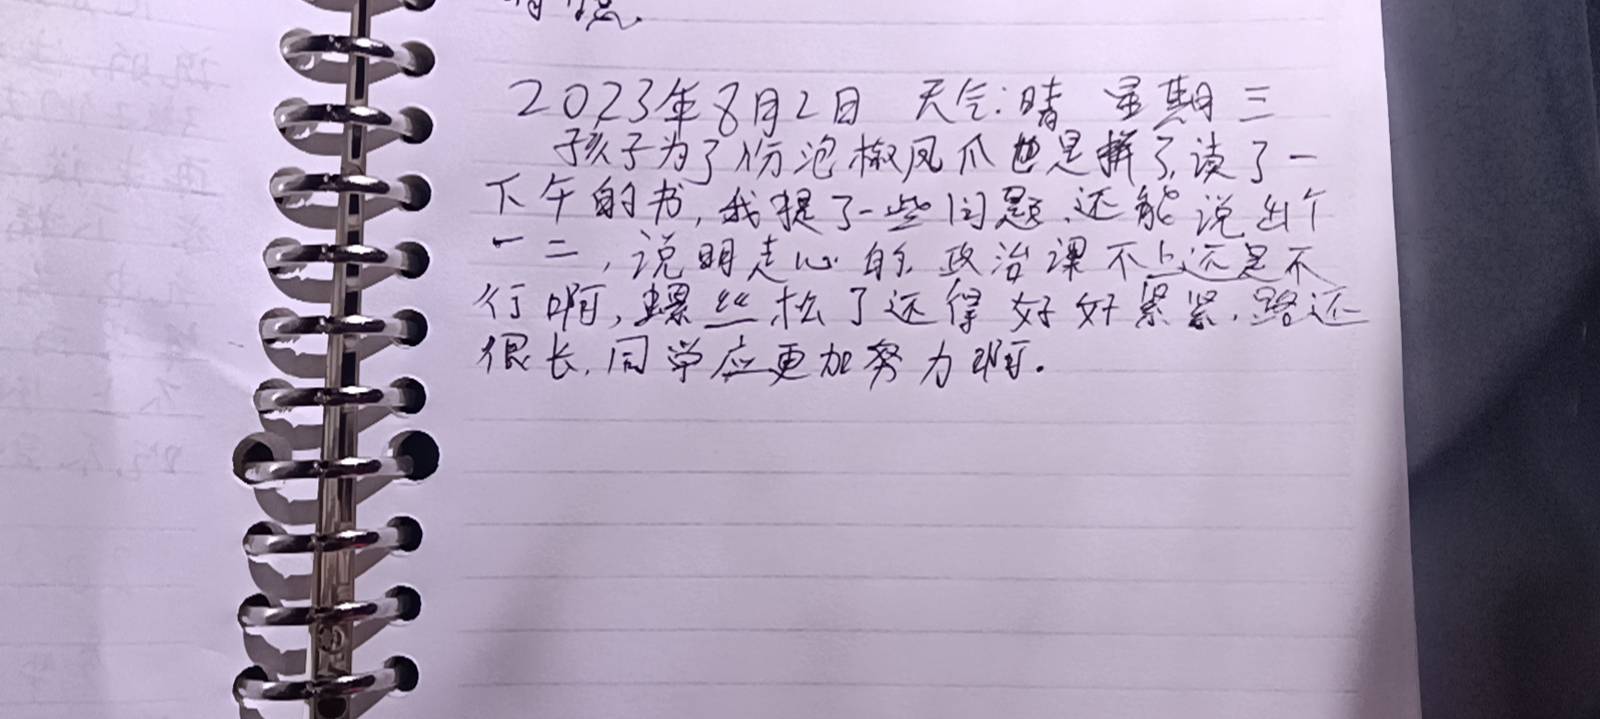 2023年8月2日 天气:晴 星期三
孩子为了份泡椒凤爪也是拼了,读了一
下午的书,我提了一些问题,还能说出个
一二,说明走心的,政治课不上还是不
行啊,螺丝松了还得好好紧紧,路还
很长,同学应更加努力啊.